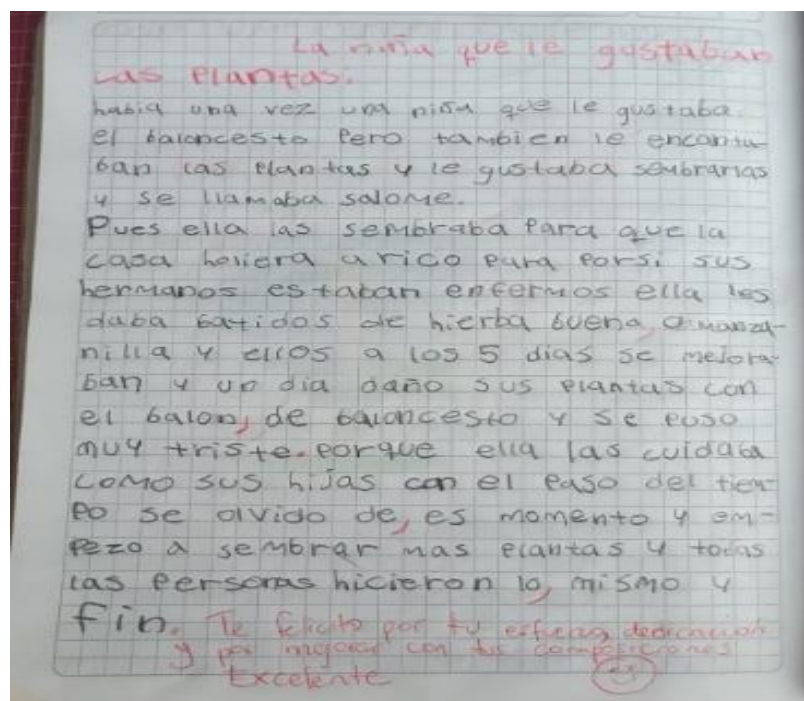 La niña que le gustaban
Las Plantas.
había una vez una niña que le gustaba
el baloncesto Pero tambien le encanta-
ban las plantas y le gustaba senbrarlas
y se llamaba salome.
Pues ella las sembraba Para que la
casa holiera a rico para porsi sus
hermanos estaban enfermos ella les
daba batidos de hierba buena, o manza-
nilla y ellos a los 5 dias se mejora-
ban y un dia daño sus plantas con
el balon, de baloncesto y se puso
muy triste. porque ella las cuidaba
como sus hijas con el paso del tiem-
po se olvido de, es momento y em-
pezo a sembrar mas plantas y todas
las personas hicieron lo, mismo y
fin. Te felicito por tu esfuerzo, dedicación
y por mejorar con tus composiciones
Excelente